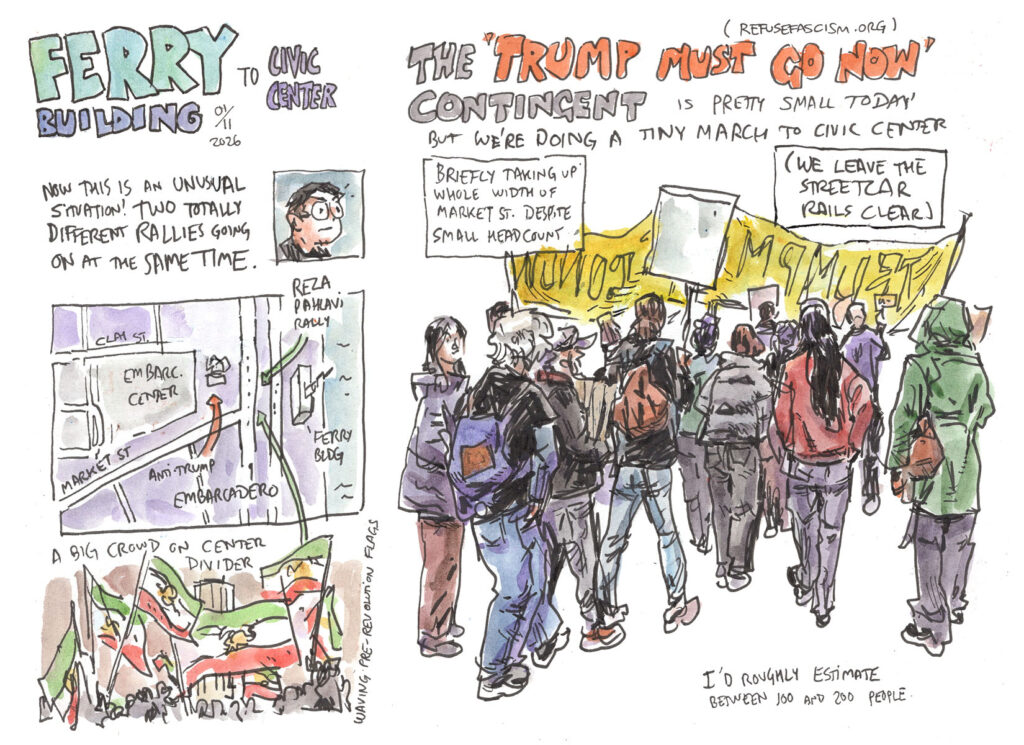 FERRY
BUILDING
TO
CIVIC
CENTER
01/11
2026
NOW THIS IS AN UNUSUAL
SITUATION! TWO TOTALLY
DIFFERENT RALLIES GOING
ON AT THE SAME TIME.
REZA
PAHLAVI
RALLY
CLAY ST.
EMBARC.
CENTER
MARKET ST
ANTI-TRUMP
EMBARCADERO
FERRY
BLDG
A BIG CROWD ON CENTER
DIVIDER
WAVING PRE-REVOLUTION FLAGS
(REFUSEFASCISM.ORG)
THE 'TRUMP MUST GO NOW'
CONTINGENT IS PRETTY SMALL TODAY
BUT WE'RE DOING A TINY MARCH TO CIVIC CENTER
BRIEFLY TAKING UP
WHOLE WIDTH OF
MARKET ST. DESPITE
SMALL HEADCOUNT
(WE LEAVE THE
STREETCAR
RAILS CLEAR)
I'D ROUGHLY ESTIMATE
BETWEEN 100 AND 200 PEOPLE